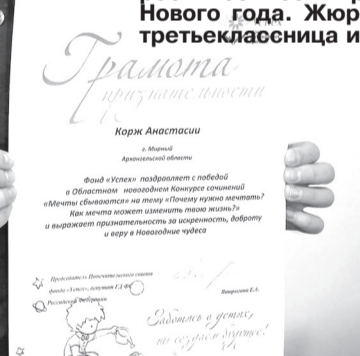 Нового года. Жюр
третьеклассница и
Грамота
признательности
Корж Анастасии
г. Мирный
Архангельской области
Фонд «Успех» поздравляет с победой
в Областном новогоднем Конкурсе сочинений
«Мечты сбываются» на тему «Почему нужно мечтать?
Как мечта может изменить твою жизнь?»
и выражает признательность за искренность, доброту
и веру в Новогодние чудеса
Председатель Попечительского совета
фонда «Успех», депутат ГД ФС
Российской Федерации
Заботясь о детях,
мы создаем будущее!